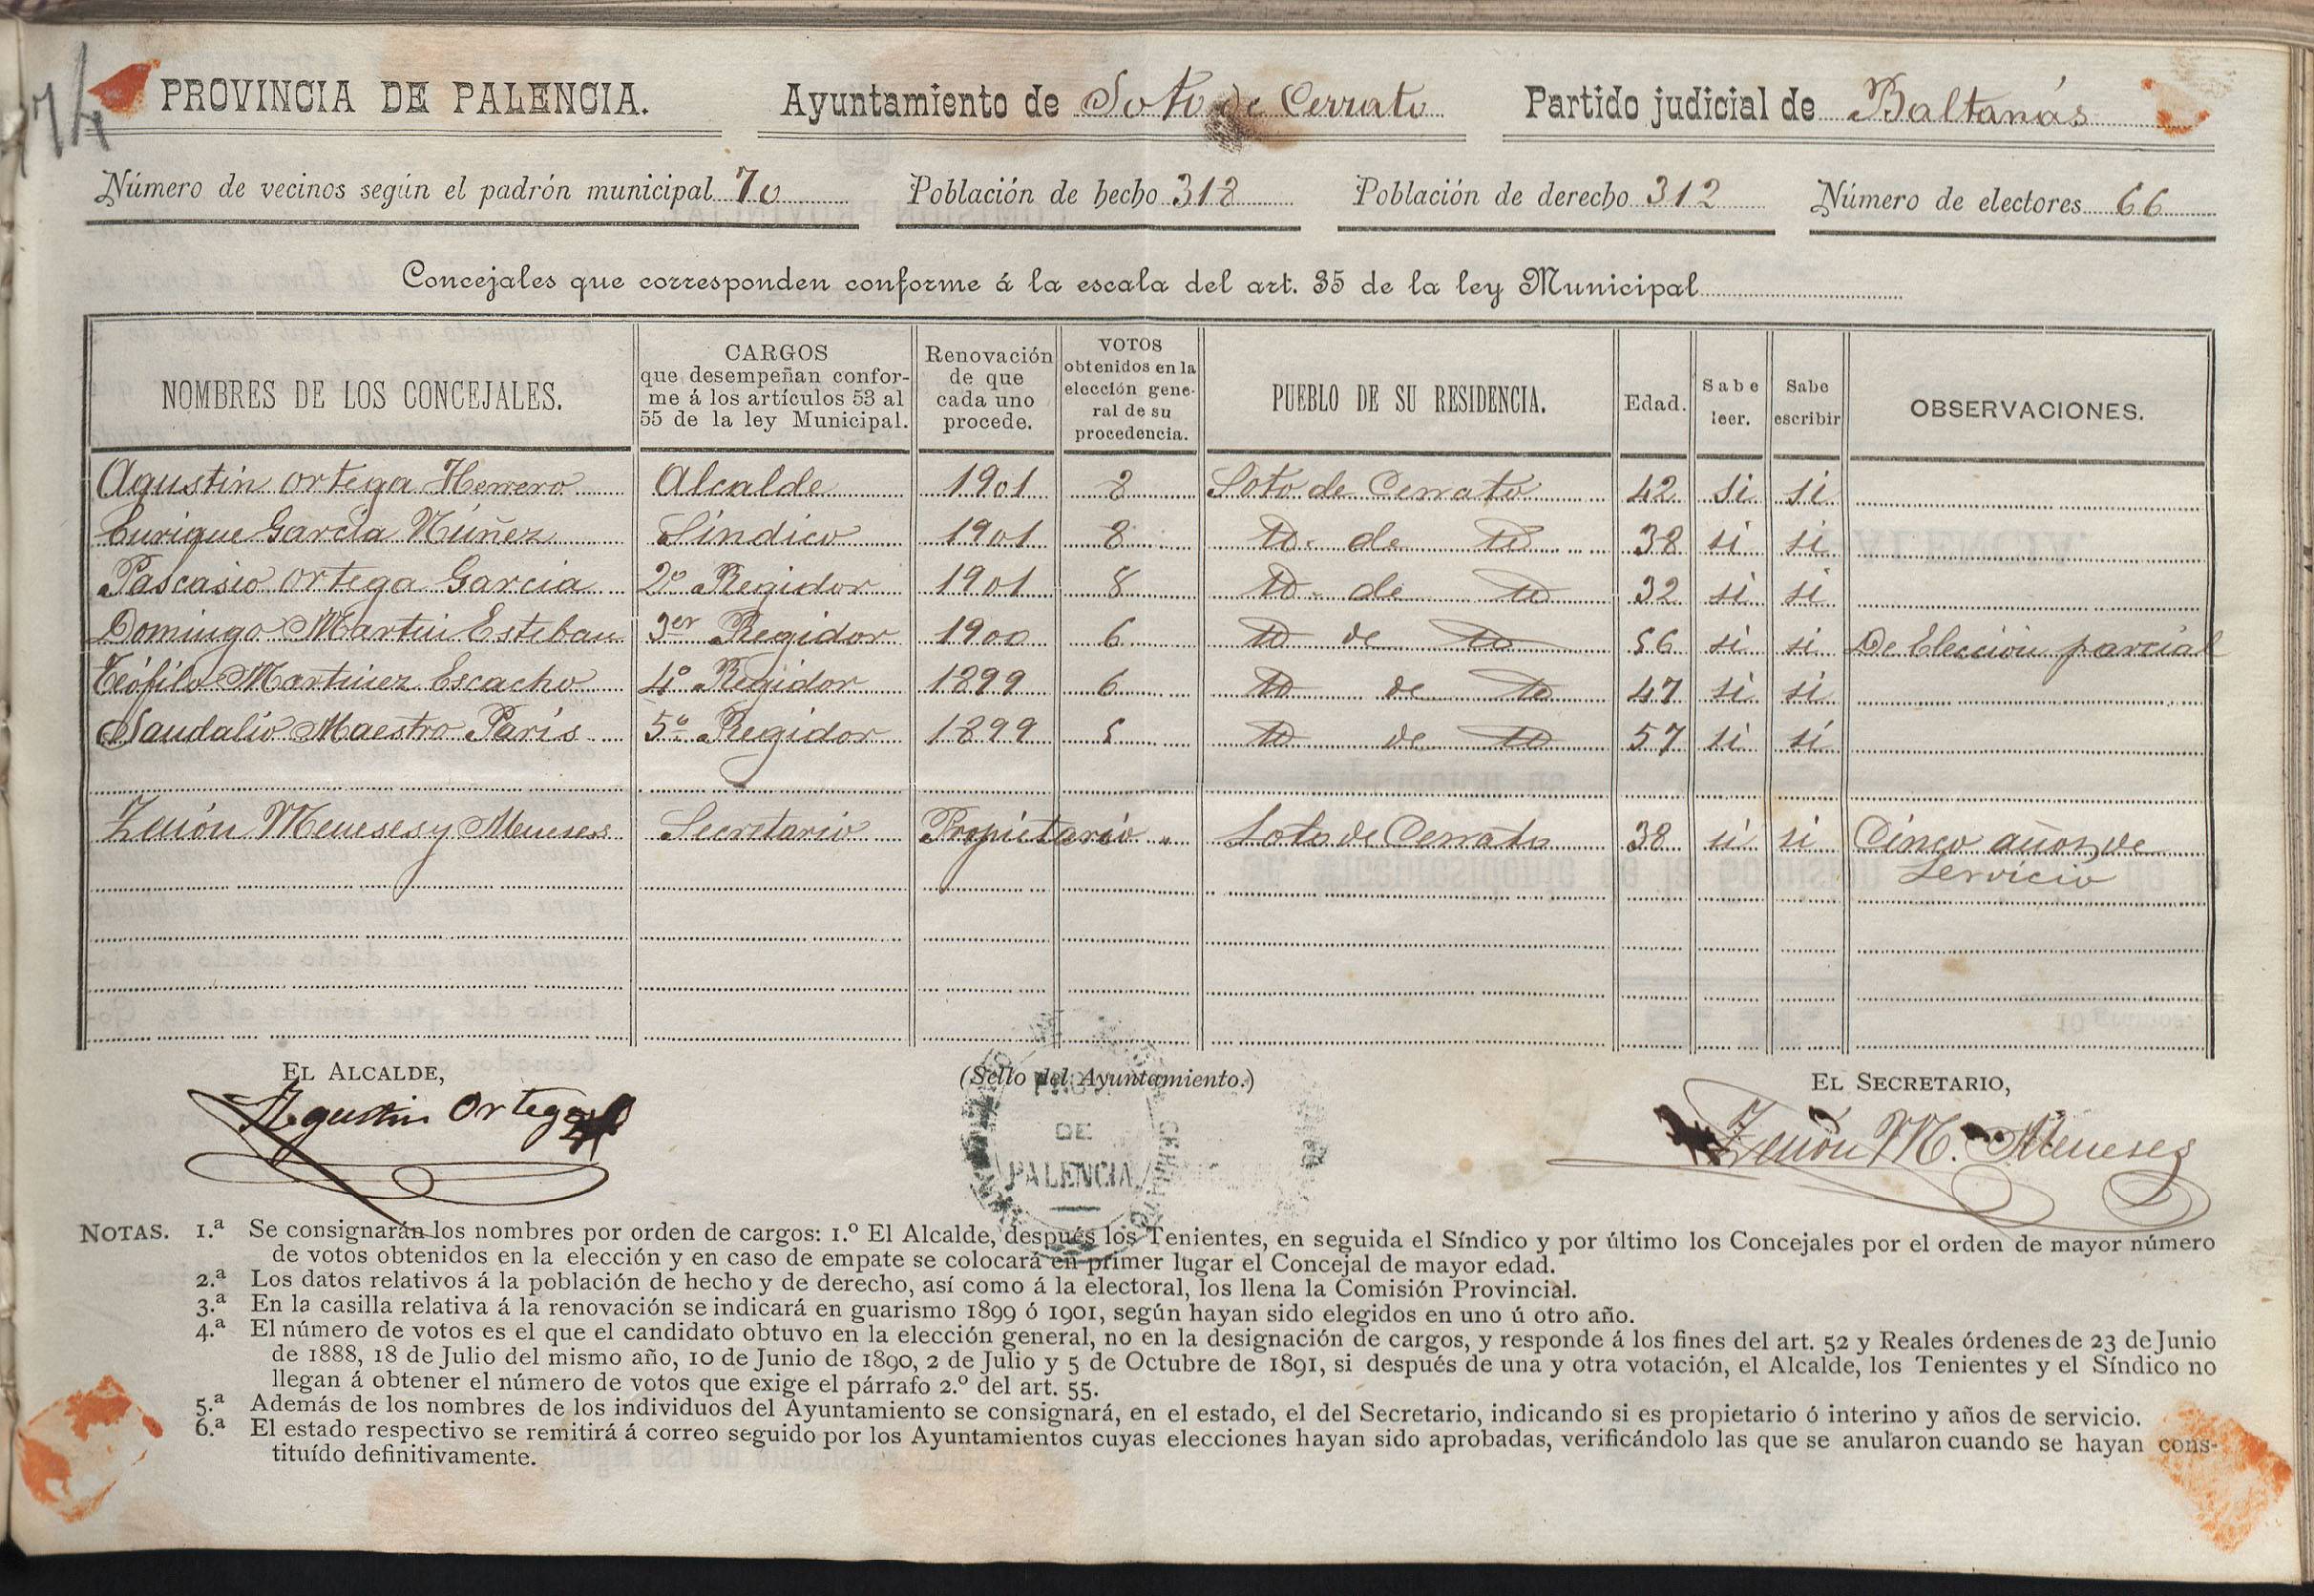 74
PROVINCIA DE PALENCIA. Ayuntamiento de Soto de Cerrato Partido judicial de Baltanás
Número de vecinos según el padrón municipal 70 Población de hecho 318 Población de derecho 312 Número de electores 66
Concejales que corresponden conforme á la escala del art. 35 de la ley Municipal
NOMBRES DE LOS CONCEJALES. CARGOS que desempeñan conforme á los artículos 53 al 55 de la ley Municipal. Renovación de que cada uno procede. VOTOS obtenidos en la elección general de su procedencia. PUEBLO DE SU RESIDENCIA. Edad. Sabe leer. Sabe escribir OBSERVACIONES.
Agustín Ortega Herrero Alcalde 1901 8 Soto de Cerrato 42 si si
Enrique García Núñez Síndico 1901 8 id. de id 38 si si
Pascasio Ortega García 2º Regidor 1901 8 id. de id 32 si si
Domingo Martín Esteban 3er Regidor 1900 6 id de id 56 si si De Elección parcial
Teófilo Martínez Escacho 4º Regidor 1899 6 id de id 47 si si
Saudalio Maestro París 5º Regidor 1899 5 id de id 57 si si
Zenón Meneses y Meneses Secretario Propietario " Soto de Cerrato 38 si si Cinco años de
servicio
EL ALCALDE, (Sello del Ayuntamiento.) EL SECRETARIO,
Agustin Ortega Zenón M. Meneses
PROVª
DE
PALENCIA
NOTAS. 1.ª Se consignarán los nombres por orden de cargos: 1.º El Alcalde, después los Tenientes, en seguida el Síndico y por último los Concejales por el orden de mayor número
de votos obtenidos en la elección y en caso de empate se colocará en primer lugar el Concejal de mayor edad.
2.ª Los datos relativos á la población de hecho y de derecho, así como á la electoral, los llena la Comisión Provincial.
3.ª En la casilla relativa á la renovación se indicará en guarismo 1899 ó 1901, según hayan sido elegidos en uno ú otro año.
4.ª El número de votos es el que el candidato obtuvo en la elección general, no en la designación de cargos, y responde á los fines del art. 52 y Reales órdenes de 23 de Junio
de 1888, 18 de Julio del mismo año, 10 de Junio de 1890, 2 de Julio y 5 de Octubre de 1891, si después de una y otra votación, el Alcalde, los Tenientes y el Síndico no
llegan á obtener el número de votos que exige el párrafo 2.º del art. 55.
5.ª Además de los nombres de los individuos del Ayuntamiento se consignará, en el estado, el del Secretario, indicando si es propietario ó interino y años de servicio.
6.ª El estado respectivo se remitirá á correo seguido por los Ayuntamientos cuyas elecciones hayan sido aprobadas, verificándolo las que se anularon cuando se hayan cons-
tituído definitivamente.